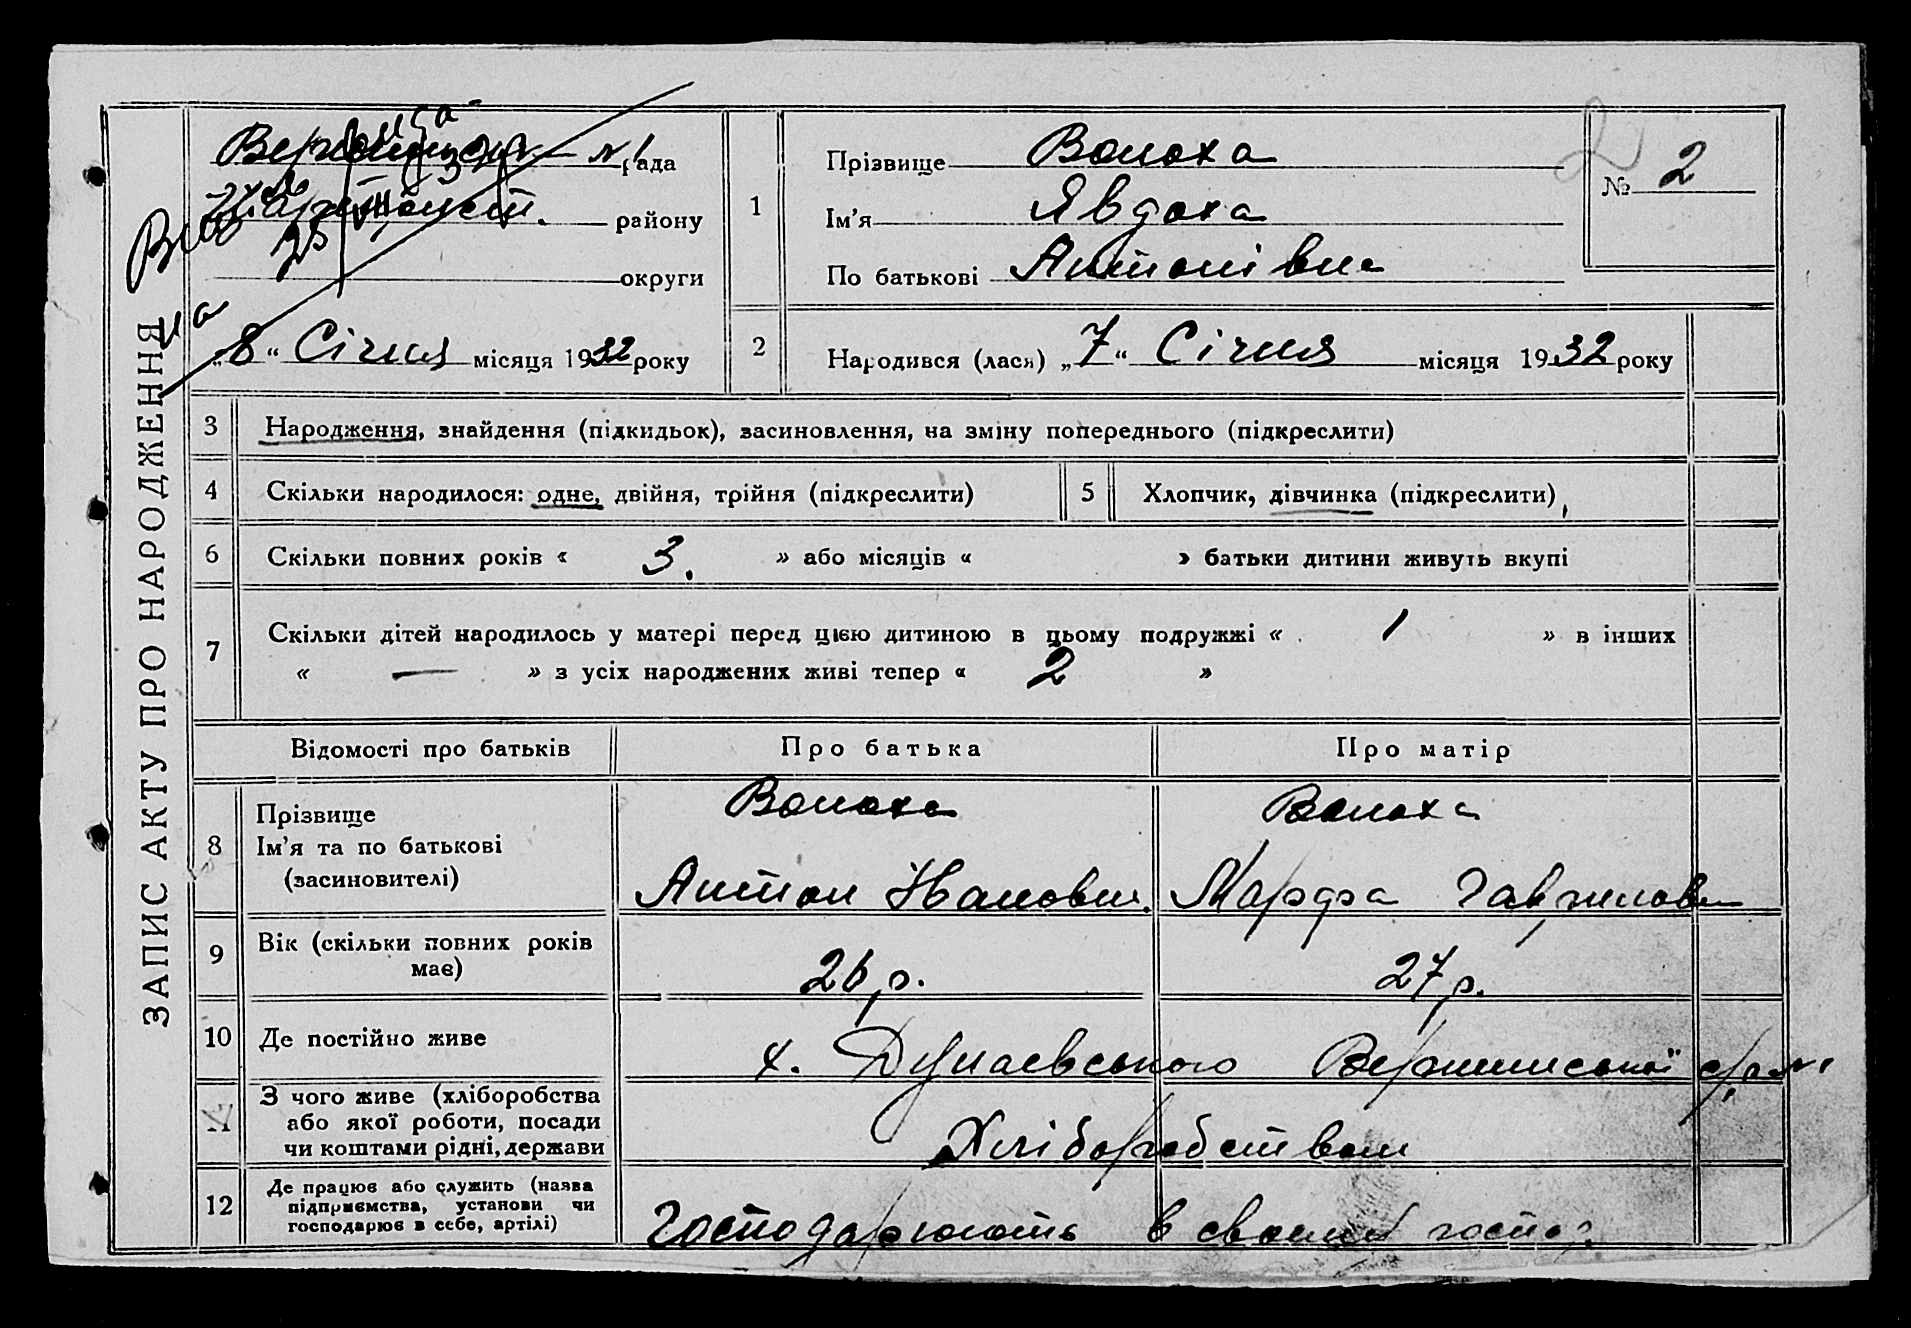 ЗАПИС АКТУ ПРО НАРОДЖЕННЯ
рада
району
округи
„8“ Січня місяця 1932 року
1
Прізвище Волоха
Ім'я Явдоха
По батькові Антонівна
№ 2
2
2 Народився (лася) „7“ Січня місяця 1932 року
3 Народження, знайдення (підкидьок), засиновлення, на зміну попереднього (підкреслити)
4 Скільки народилося: одне, двійня, трійня (підкреслити) 5 Хлопчик, дівчинка (підкреслити)
6 Скільки повних років « 3. » або місяців « » батьки дитини живуть вкупі
7 Скільки дітей народилось у матері перед цією дитиною в цьому подружжі « 1 » в інших
« — » з усіх народжених живі тепер « 2 »
Відомості про батьків Про батька Про матір
8 Прізвище
Ім'я та по батькові
(засиновителі)
Волоха Волоха
Антон Іванович Марфа Гаврилов
9 Вік (скільки повних років
має)
26 р. 27 р.
10 Де постійно живе х. Дунаевського Вершинської с/ради
11 З чого живе (хліборобства
або якої роботи, посади
чи коштами рідні, держави
Хліборобством
12 Де працює або служить (назва
підприємства, установи чи
господарює в себе, артілі)
Господарюють в своєму госпо.